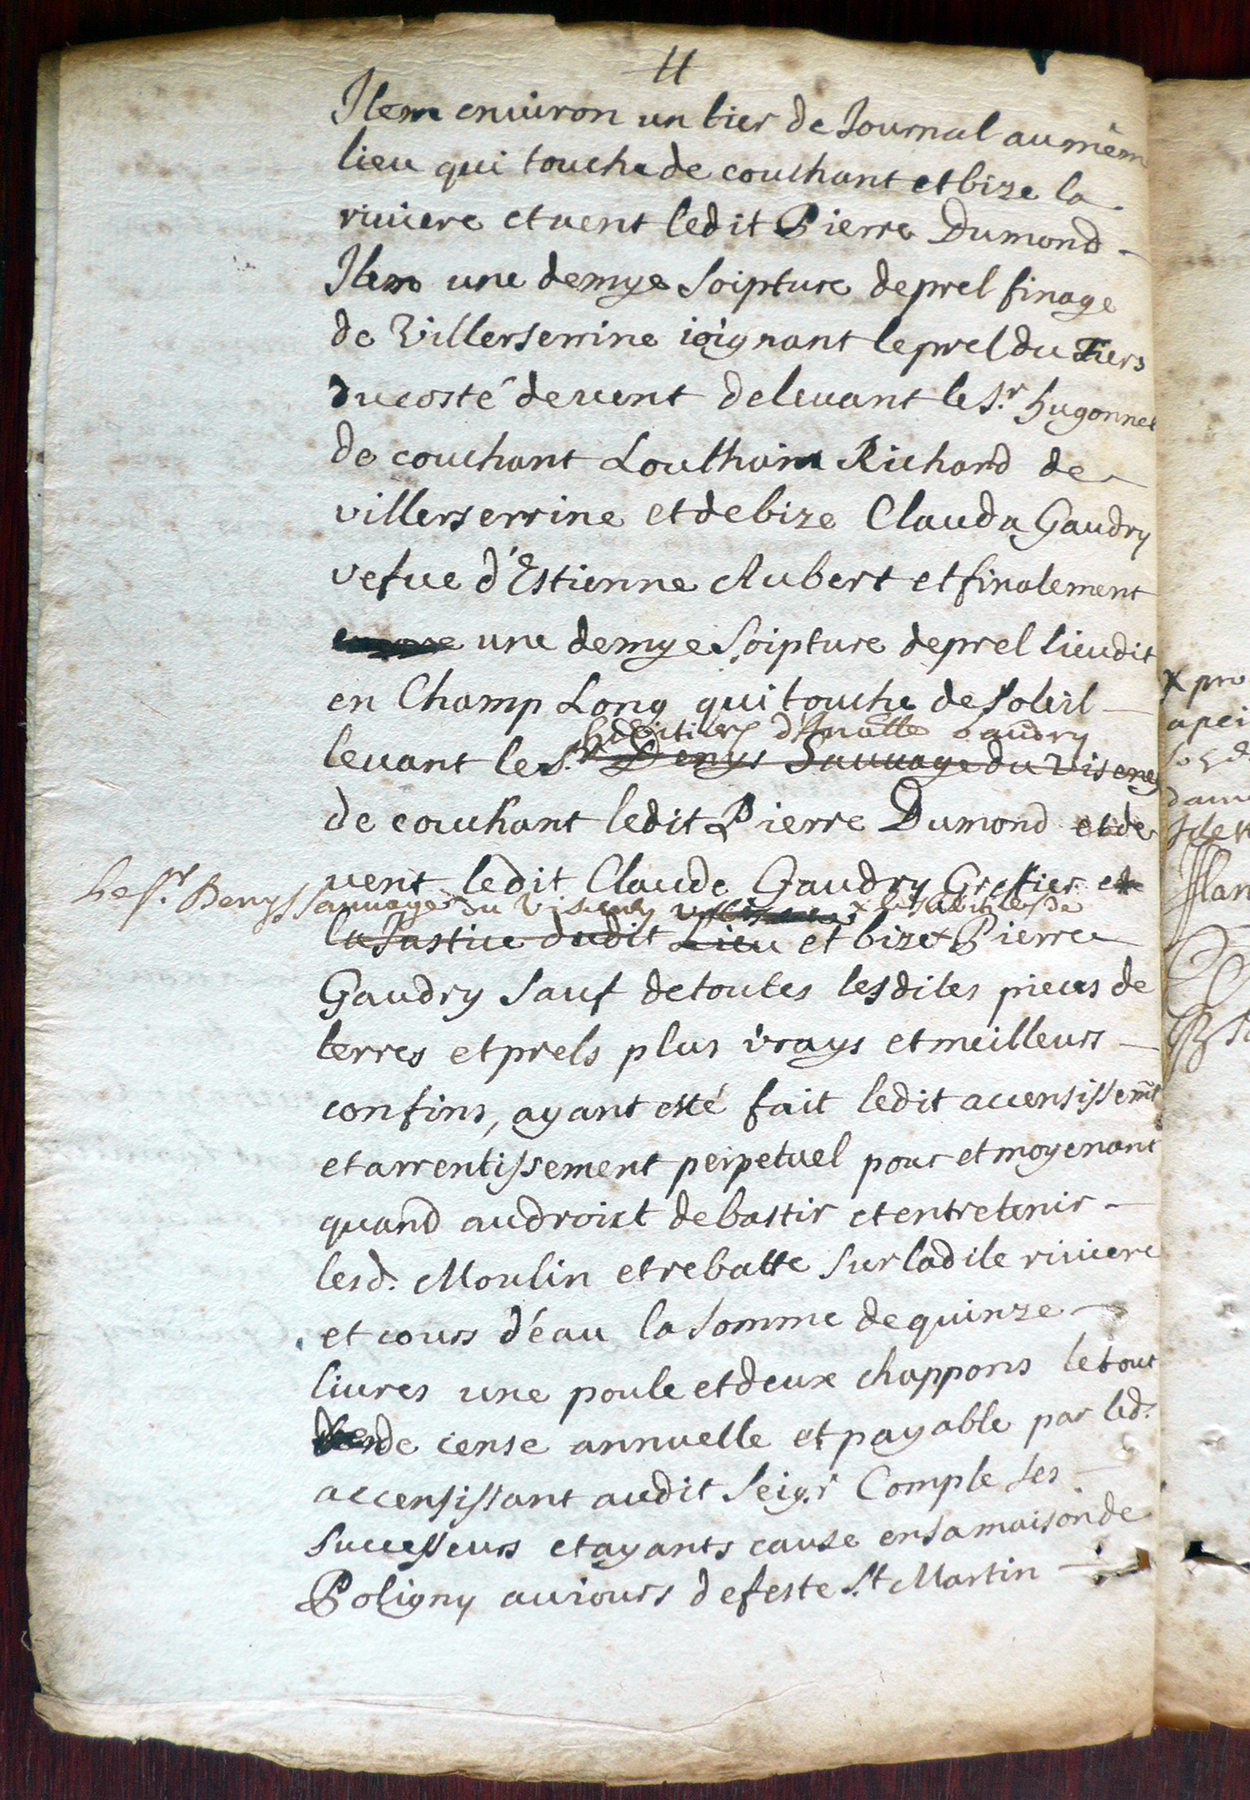 H
Item enuiron un tier de Journal au mêm
lieu qui touche de couchant et bize la
riuiere et uent ledit Pierre Dumond
Item une demye Soipture de prel finage
de Villerserrine ioignant le prel du Tiers
du costé de uent de leuant le Sr. hugonnet
de couchant Louthain Richard de
villerserrine et de bize Clauda Gaudry
vefue d'Estienne Aubert et finalement
une demye Soipture de prel lieudit
en Champ Long qui touche de soleil
heritiers d'Anatle Gaudry
leuant le Sr. Denys Sauuage du Viseney
de couchant ledit Pierre Dumond et de
uent ledit Claude Gaudry Grefier et
le sr. Denys Sauuage du Viseney x les heritiers de
la Justice dudit Lieu et bize x Pierre
Gaudry Sauf de toutes lesdites pieces de
terres et prels plus vrays et meilleurs
confins, ayant esté fait ledit accensissemt
et arrentissement perpetuel pour et moyenant
quand au droict de bastir et entretenir
lesd. Moulin et rebatte Sur ladite riuiere
et cours d'éau la Somme de quinze
liures une poule et deux chappons le tout
de cense annuelle et payable par led.
accensissant audit Seigr. Comple ses
Successeurs et ayants cause en sa maison de
Poligny au iours de feste St. Martin
x pro